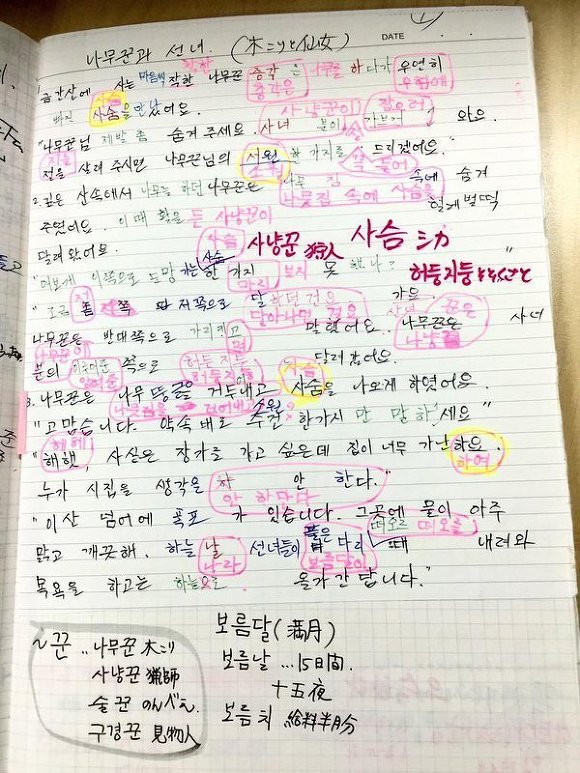 나무꾼과 선녀. (木こりと仙女)
DATE
금간산에 사는 마음씨 착한 나무꾼 총각은 나무를 하다가 우연히
총각은 우연히
빠진 사슴을 만났어요. 사냥꾼이 잡으러
"나무꾼님 제발 좀 숨겨 주세요. 사녀 분이 와요.
저를
전을 살려 주시면 나무꾼님의 시원 한 가지를 드리겠어요."
소원 들어
2. 깊은 산속에서 나무를 하던 나무꾼은 나무 짐 속에 숨겨
나뭇짐 속에 사슴을
주었어요. 이 때 활을 든 사냥꾼이 헐레벌떡
달려왔어요.
사슴 사냥꾼 狩人 사슴 シカ
"여보게 이쪽으로 도망가는 한 가지 보지 못 했나?"
마리
허둥지둥
"조금 좀 저쪽으로 달
달아나던 걸요
나무꾼은 반대쪽으로 가리키고 말했어요. 나무꾼은 사녀
나무꾼이
분의 쪽으로 허둥지둥 달려갔어요.
3. 나무꾼은 나무 뚱글을 거두내고 사슴을 나오게 하였어요.
나뭇짐을 걷어내고
"고맙습니다. 약속대로 소원 한가지 만 말하세요"
헤헤
"해햇, 사실은 장가를 가고 싶은데 집이 너무 가난하요.
하여
누가 시집을 생각을 차 안 한다."
안 한답니다
"이산 넘어에 폭포가 있습니다. 그곳에 물이 아주
떠오르 떠오를
맑고 깨끗해. 하늘 날 선녀들이 다리 때 내려와
나라 보름달이
목욕을 하고는 하늘으로 올라간답니다."
~꾼 ‥나무꾼 木こり
사냥꾼 猟師
술꾼 のんべえ
구경꾼 見物人
보름달 (満月)
보름날 …15日間.
十五夜
보름치 給料半月分